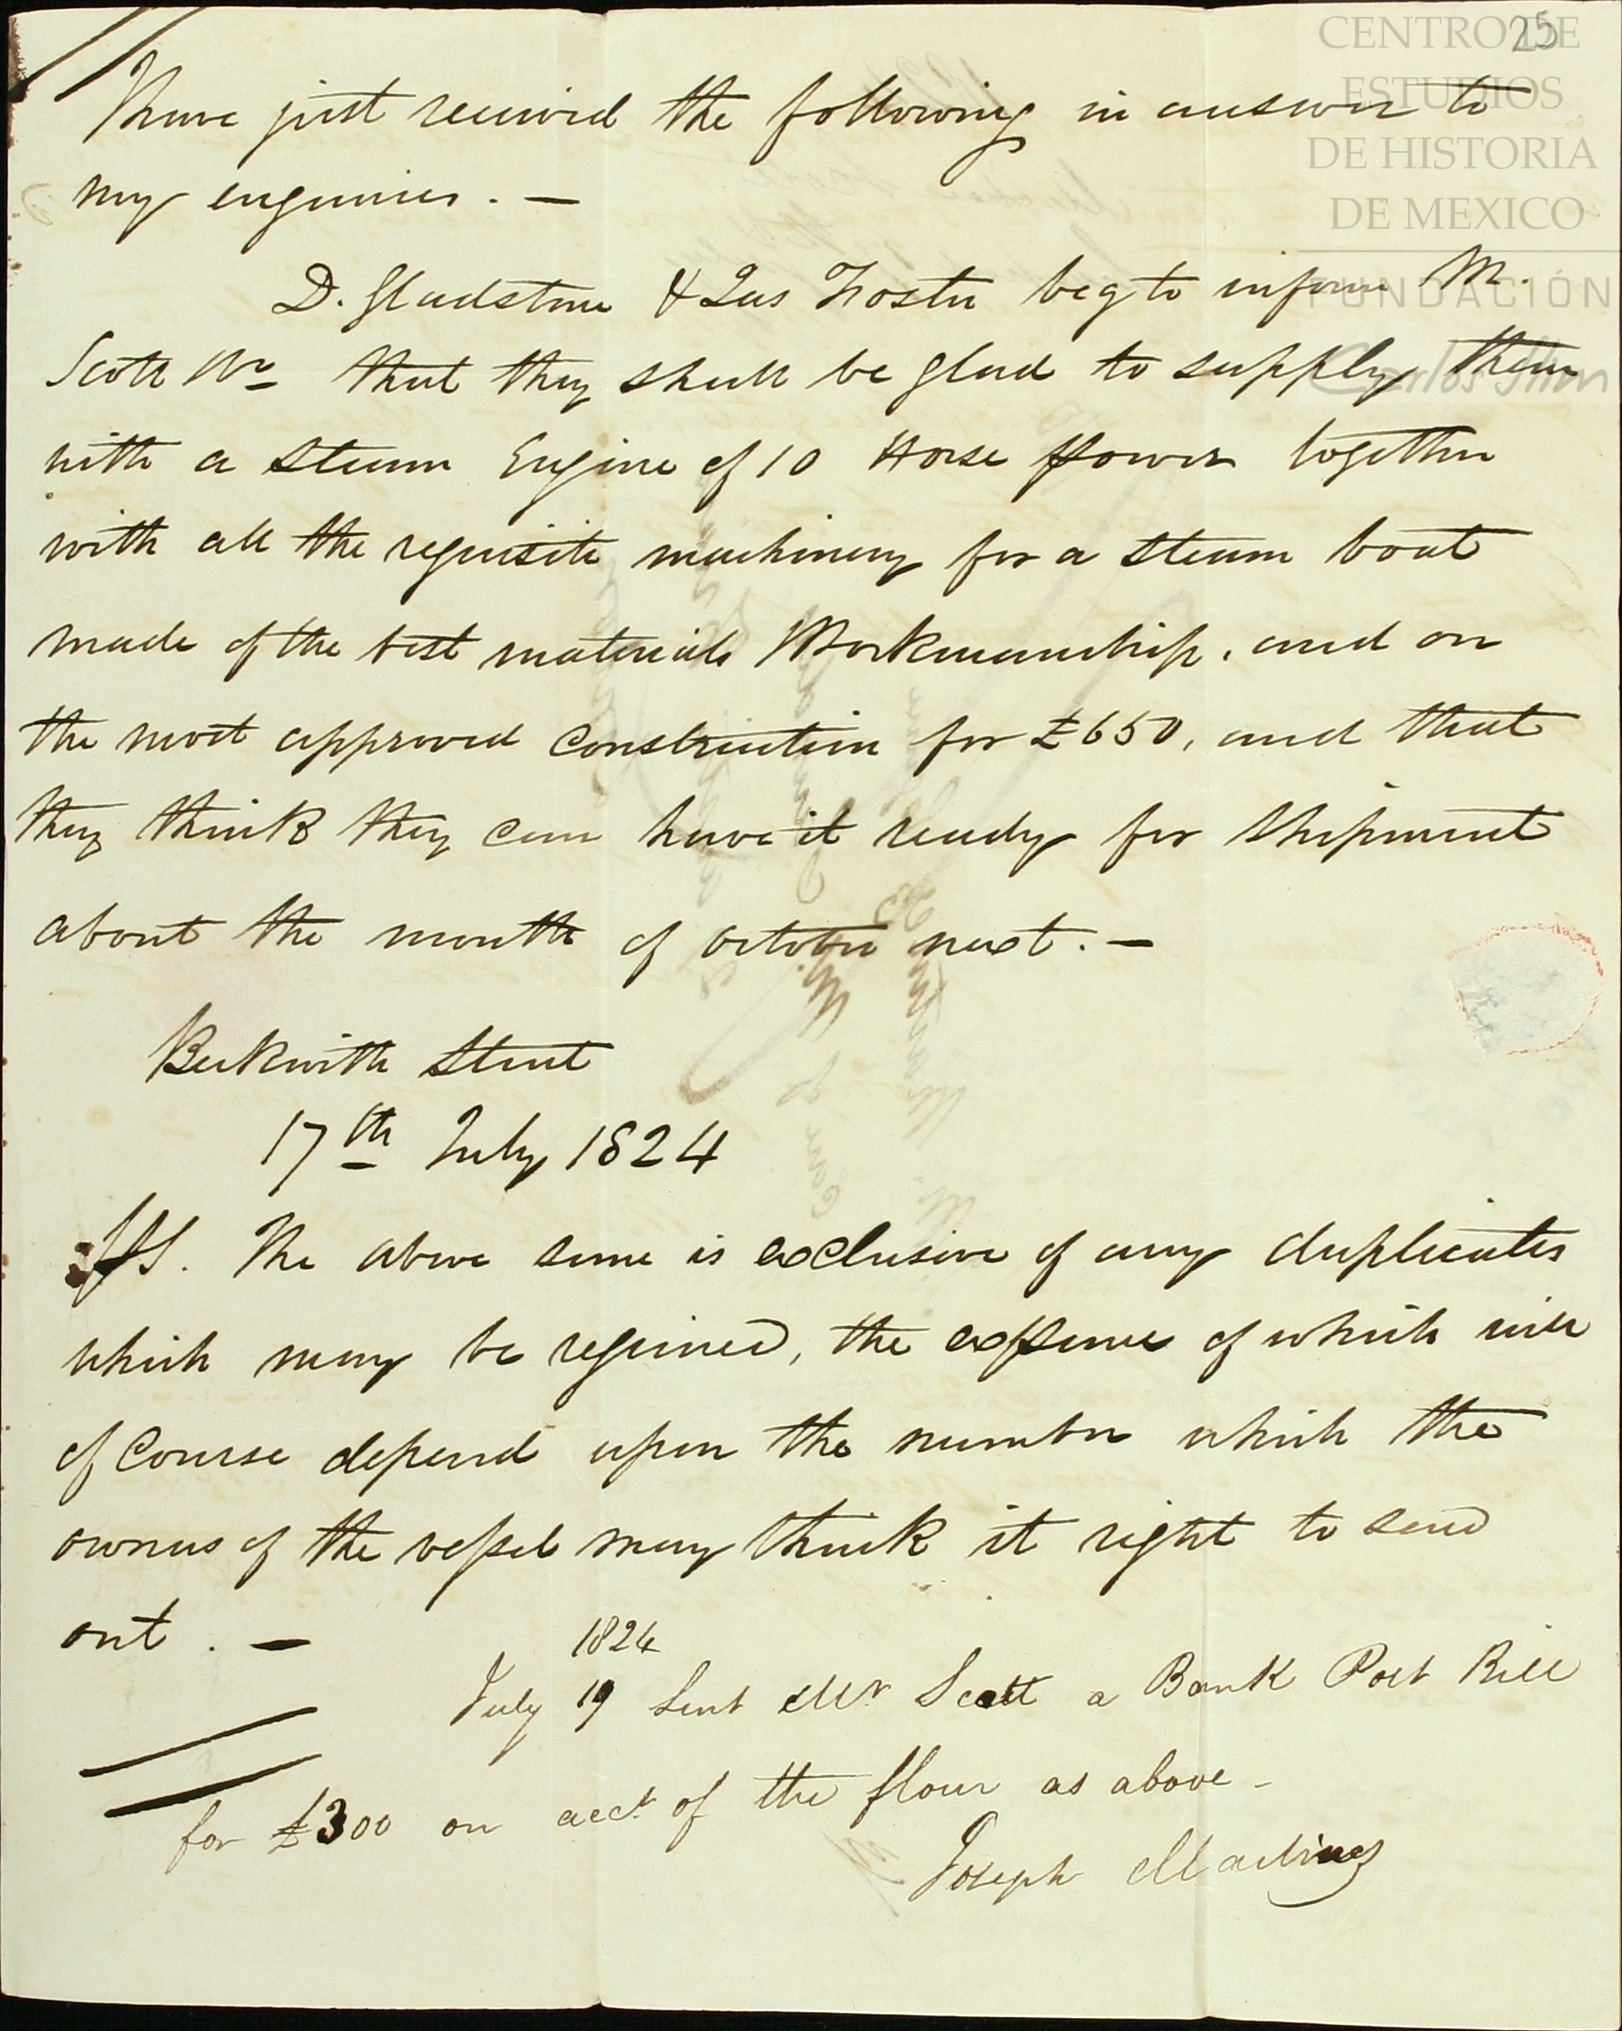 25
CENTRO DE
ESTUDIOS
DE HISTORIA
DE MEXICO
FUNDACIÓN
Carlos Slim
I have just received the following in answer to
my enquiries . —
D. Gladstone & Jas Foster beg to inform M.
Scott that they shall be glad to supply them
with a steam Engine of 10 Horse power together
with all the requisite machinery for a steam boat
made of the best materials Workmanship, and on
the most approved construction for £650, and that
they think they can have it ready for shipment
about the month of October next. —
Beckwith Street
17th July 1824
PS. The above sum is exclusive of any duplicates
which may be required, the expense of which will
of course depend upon the number which the
owners of the vessel may think it right to send
out . —
1824
July 19 Sent Mr Scott a Bank Post Bill
for £300 on acct of the flour as above –
Joseph